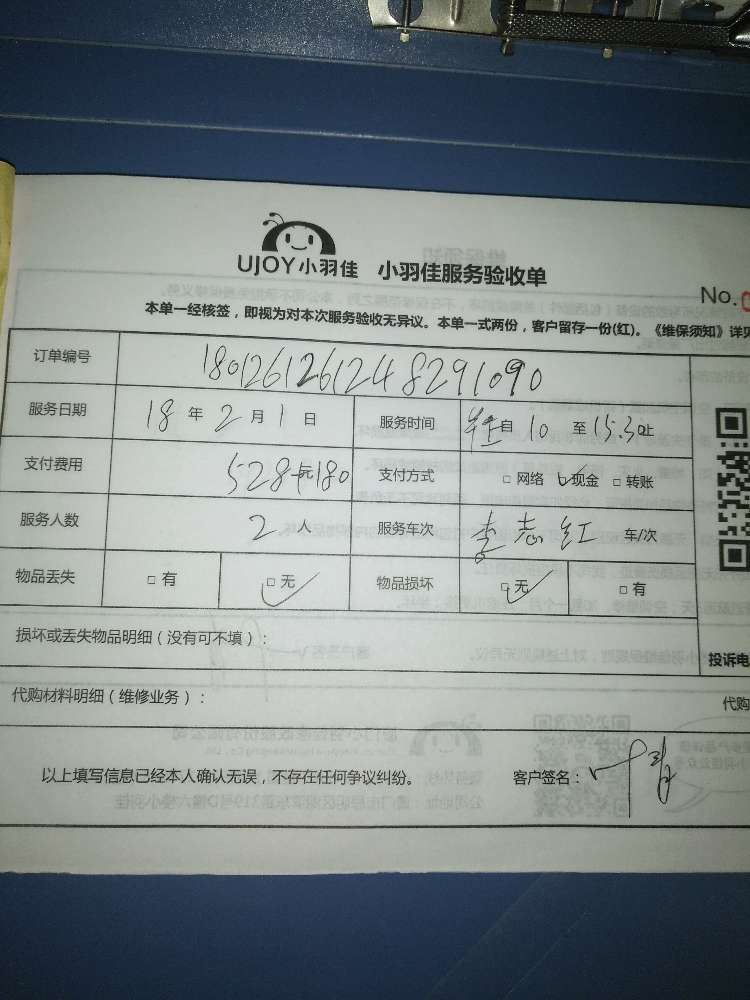 UJOY小羽佳 小羽佳服务验收单
No.
本单一经核签，即视为对本次服务验收无异议。本单一式两份，客户留存一份(红)。《维保须知》详见
订单编号 1801261261248291090
服务日期 18 年 2 月 1 日 服务时间 自 10 至 15.30止
支付费用 528 元180 支付方式 □ 网络 ☑现金 □ 转账
服务人数 2 人 服务车次 李志红 车/次
物品丢失 □ 有 ☑ 无 物品损坏 ☑ 无 □ 有
损坏或丢失物品明细（没有可不填）：
投诉电
代购材料明细（维修业务）：
代购
以上填写信息已经本人确认无误，不存在任何争议纠纷。 客户签名：